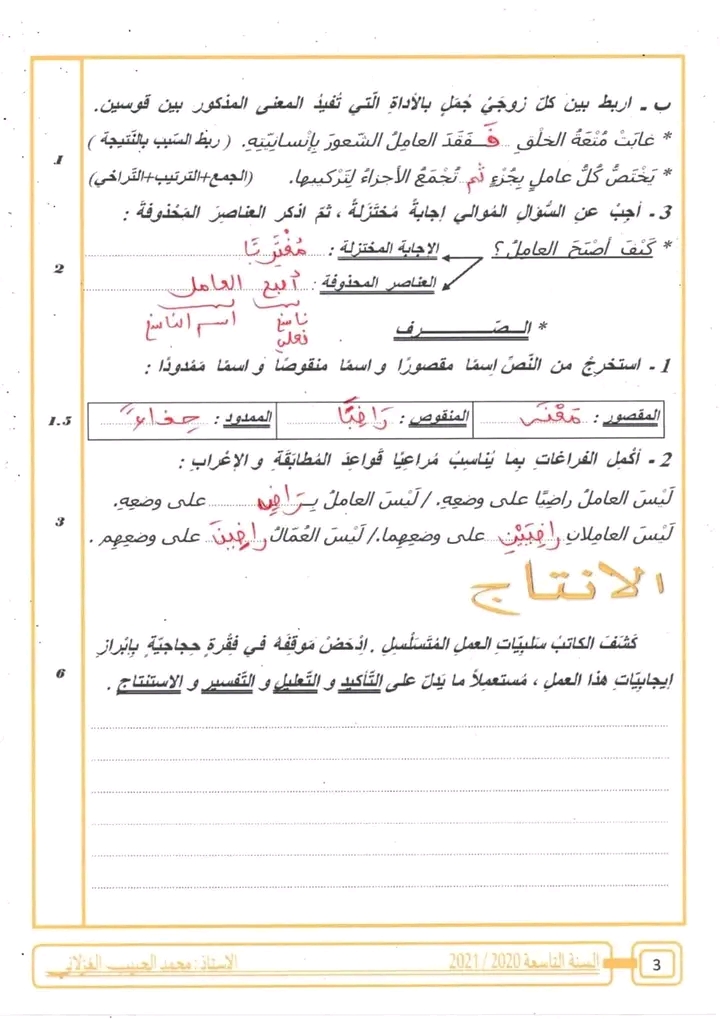 ب ـ اربط بين كلّ زوجَيْ جُمَلٍ بالأداةِ الّتي تُفيدُ المعنى المذكور بين قوسين.
* غابَتْ مُتْعَةُ الخلْقِ فَـفَقَدَ العامِلُ الشّعورَ بِإنْسانِيّتِهِ. ( ربطُ السّببِ بالنّتيجة )
1
* يَخْتَصُّ كُلُّ عاملٍ بِجُزْءٍ ثم تُجْمَعُ الأجزاءُ لِتَرْكيبها. (الجمع+الترتيب+التّراخي)
3 ـ أجِبْ عنِ السّؤالِ المُوالي إجابةً مُخْتَزلةً ، ثمّ اذكرِ العناصرَ المَحْذوفةَ :
* كَيْفَ أصْبَحَ العامِلُ؟ الإجابة المختزلة : مُغْتَرِبًا
2
العناصر المحذوفة : أصبح العامل
ناسخ فعلي اسم الناسخ
* الـصّـرف
1 ـ استخرِجْ من النّصّ اِسمًا مقصورًا و اسمًا منقوصًا و اسمًا مَمْدودًا :
1.5
المقصور : المنقوص : رَاضِيًا الممدود :
2 ـ أكْمِلِ الفراغات بما يُناسِبُ مُراعِيًا قَواعِدَ المُطابَقَةِ و الإعْرابِ :
لَيْسَ العاملُ راضِيًا على وضعِهِ. / لَيْسَ العاملُ بِـرَاضٍ على وضعِهِ.
3
لَيْسَ العامِلانِ رَاضِيَيْنِ على وضعِهِما./ لَيْسَ العُمّالُ رَاضِينَ على وضعِهِم .
الانتاج
كَشَفَ الكاتبُ سَلبِيّاتِ العملِ المُتَسَلْسِلِ . اِدْحَضْ مَوقِفَهُ في فِقْرةٍ حِجاجيّةٍ بِإبْرازِ
6
إيجابِيّاتِ هذا العملِ ، مُستعمِلاً ما يَدلّ على التّأكيدِ و التّعليلِ و التّفسيرِ و الاستنتاجِ .
3
السنة التاسعة 2020 / 2021
الاستاذ : محمد الحبيب الغزلاني